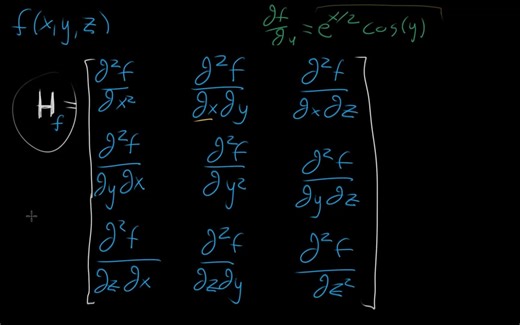 f(x,y,z)
∂f/∂y = e^(x/2) cos(y)
H_f =
∂²f/∂x² ∂²f/∂x∂y ∂²f/∂x∂z
∂²f/∂y∂x ∂²f/∂y² ∂²f/∂y∂z
∂²f/∂z∂x ∂²f/∂z∂y ∂²f/∂z²